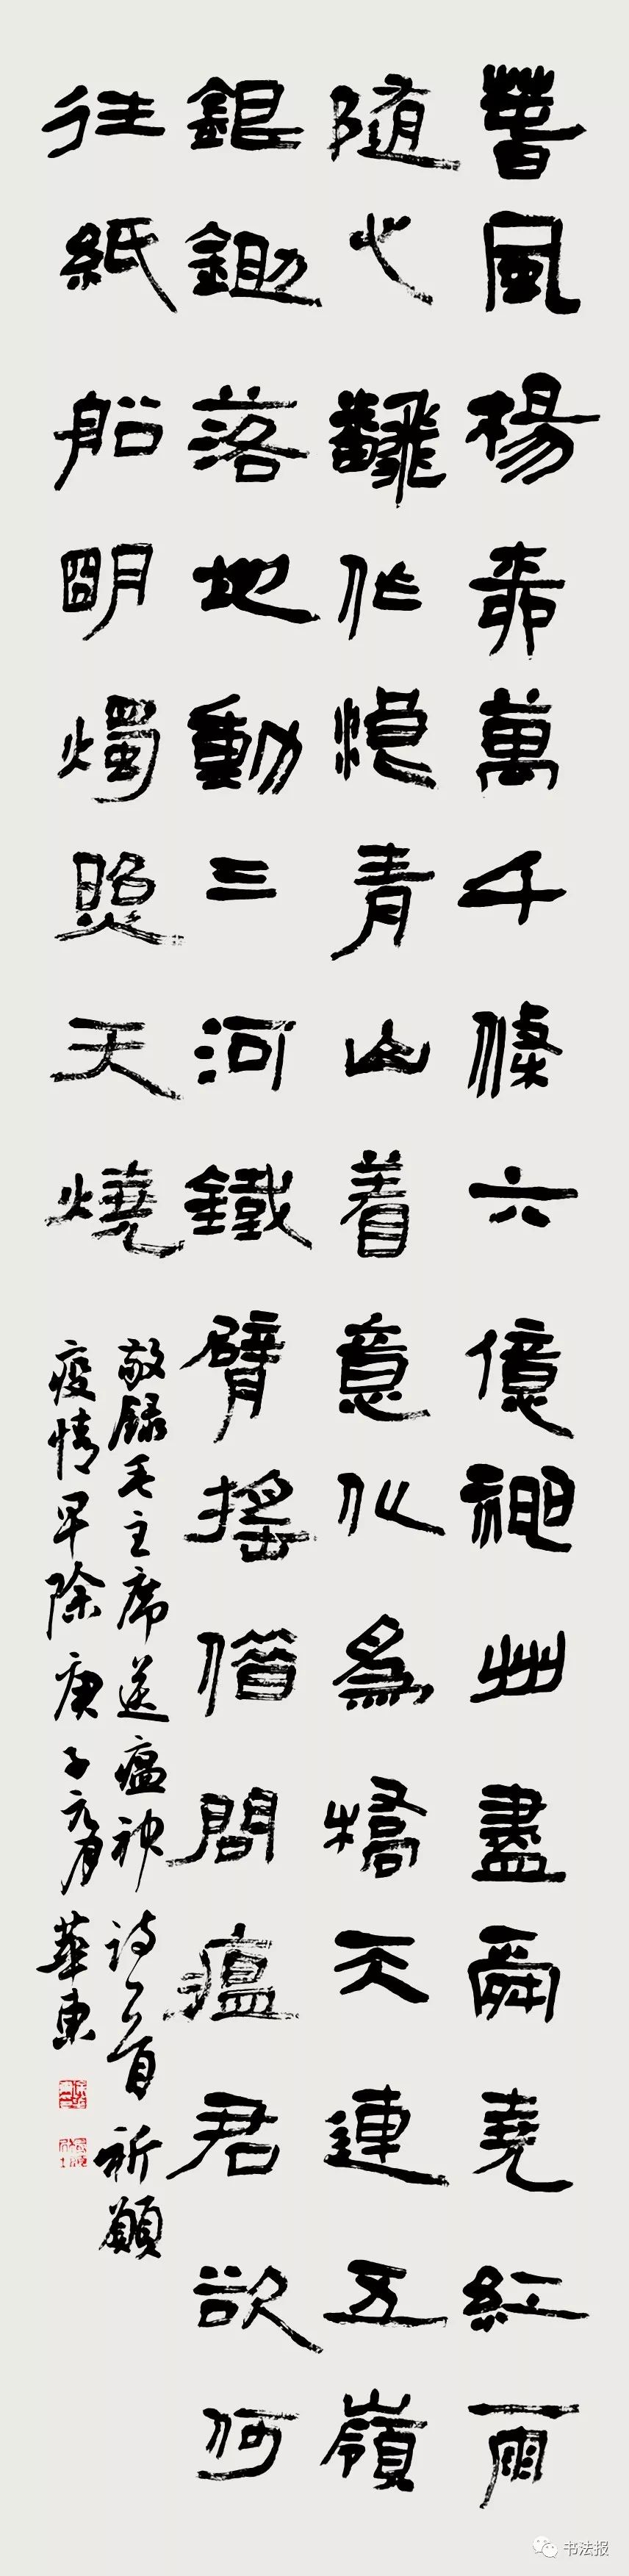 春風楊桺萬千條六億神州盡舜堯紅雨
随心飜作浪青山着意化為橋天連五嶺
銀鋤落地動三河鐵臂搖借問瘟君欲何
往紙船明燭照天燒
敬録毛主席送瘟神詩一首祈願
疫情早除庚子元月華東
书法报